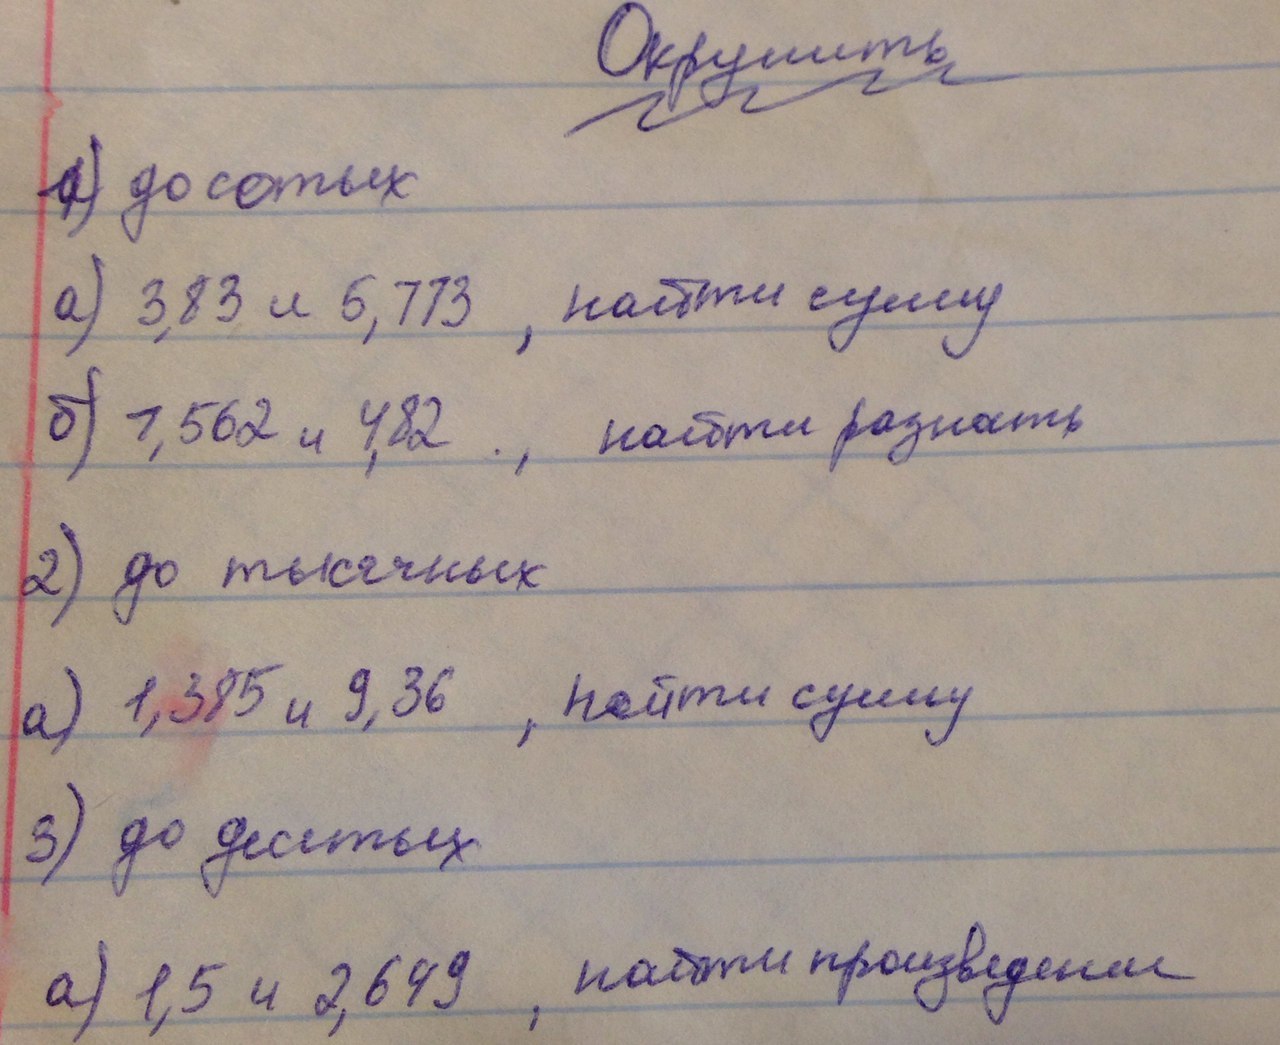 Округлить
1) до сотых
а) 3,83 и 5,773 , найти сумму
б) 1,562 и 4,82 . , найти разность
2) до тысячных
а) 1,385 и 9,36 , найти сумму
3) до десятых
а) 1,5 и 2,649 , найти произведение